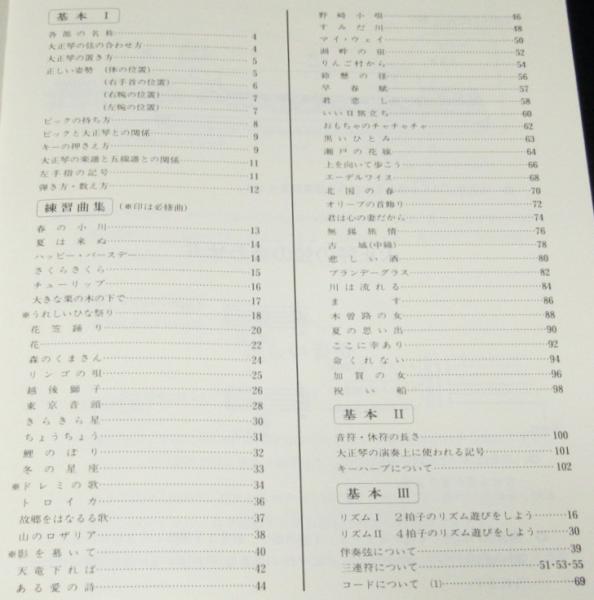 基本 Ⅰ
各部の名称 4
大正琴の弦の合わせ方 4
大正琴の置き方 5
正しい姿勢 (体の位置) 5
(右手首の位置) 6
(右腕の位置) 7
(左腕の位置) 7
ピックの持ち方 8
ピックと大正琴との関係 9
キーの押さえ方 9
大正琴の楽譜と五線譜との関係 11
左手指の記号 11
弾き方・数え方 12
練習曲集 (※印は必修曲)
春の小川 13
夏は来ぬ 14
ハッピー・バースデー 14
さくらさくら 15
チューリップ 16
大きな栗の木の下で 17
※うれしいひな祭り 18
花笠踊り 20
花 22
森のくまさん 24
リンゴの唄 25
越後獅子 26
東京音頭 28
きらきら星 30
ちょうちょう 31
鯉のぼり 32
冬の星座 33
※ドレミの歌 34
トロイカ 36
故郷をはなるる歌 37
山のロザリア 38
※影を慕いて 40
天竜下れば 42
ある愛の詩 44
野崎小唄 46
すみだ川 48
マイ・ウェイ 50
湖畔の宿 52
りんご村から 54
鈴懸の径 56
早春賦 57
君恋し 58
いい日旅立ち 60
おもちゃのチャチャチャ 62
黒いひとみ 63
瀬戸の花嫁 64
上を向いて歩こう 66
エーデルワイス 68
北国の春 70
オリーブの首飾り 72
君は心の妻だから 74
無錫旅情 76
古城(中級) 78
悲しい酒 80
ブランデーグラス 82
川は流れる 84
ます 86
木曽路の女 88
夏の思い出 90
ここに幸あり 92
命くれない 94
加賀の女 96
祝い船 98
基本 Ⅱ
音符・休符の長さ 100
大正琴の演奏上に使われる記号 101
キーハープについて 102
基本 Ⅲ
リズムⅠ 2拍子のリズム遊びをしよう 16
リズムⅡ 4拍子のリズム遊びをしよう 30
伴奏弦について 39
三連符について 51・53・55
コードについて (1) 69